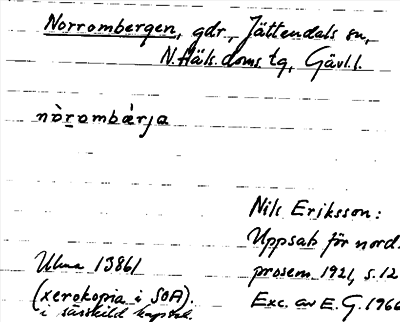 Norrombergen, gdr., Jättendals sn,
N. Häls. doms. tg, Gävl. l.
nòrombærja
Nils Eriksson:
Uppsats för nord.
Uluma 13861
prosem 1921, s. 12
(xerokopia i SOA).
Exc. av E. G. 1966
i särskild kapsel.